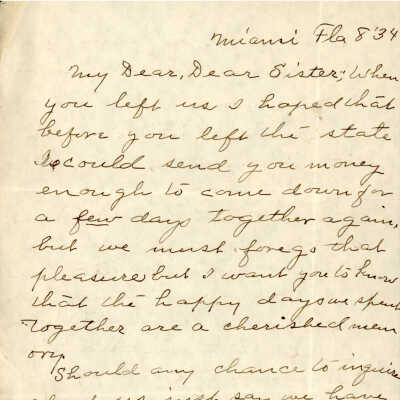 Miami Fla 8 '34
My Dear, Dear Sister; When
you left us I hoped that
before you left the state
I could send you money
enough to come down for
a few days together again,
but we must forego that
pleasure but I want you to know
that the happy days we spent
together are a cherished mem
ory.
Should any chance to inquire
about us just say we have